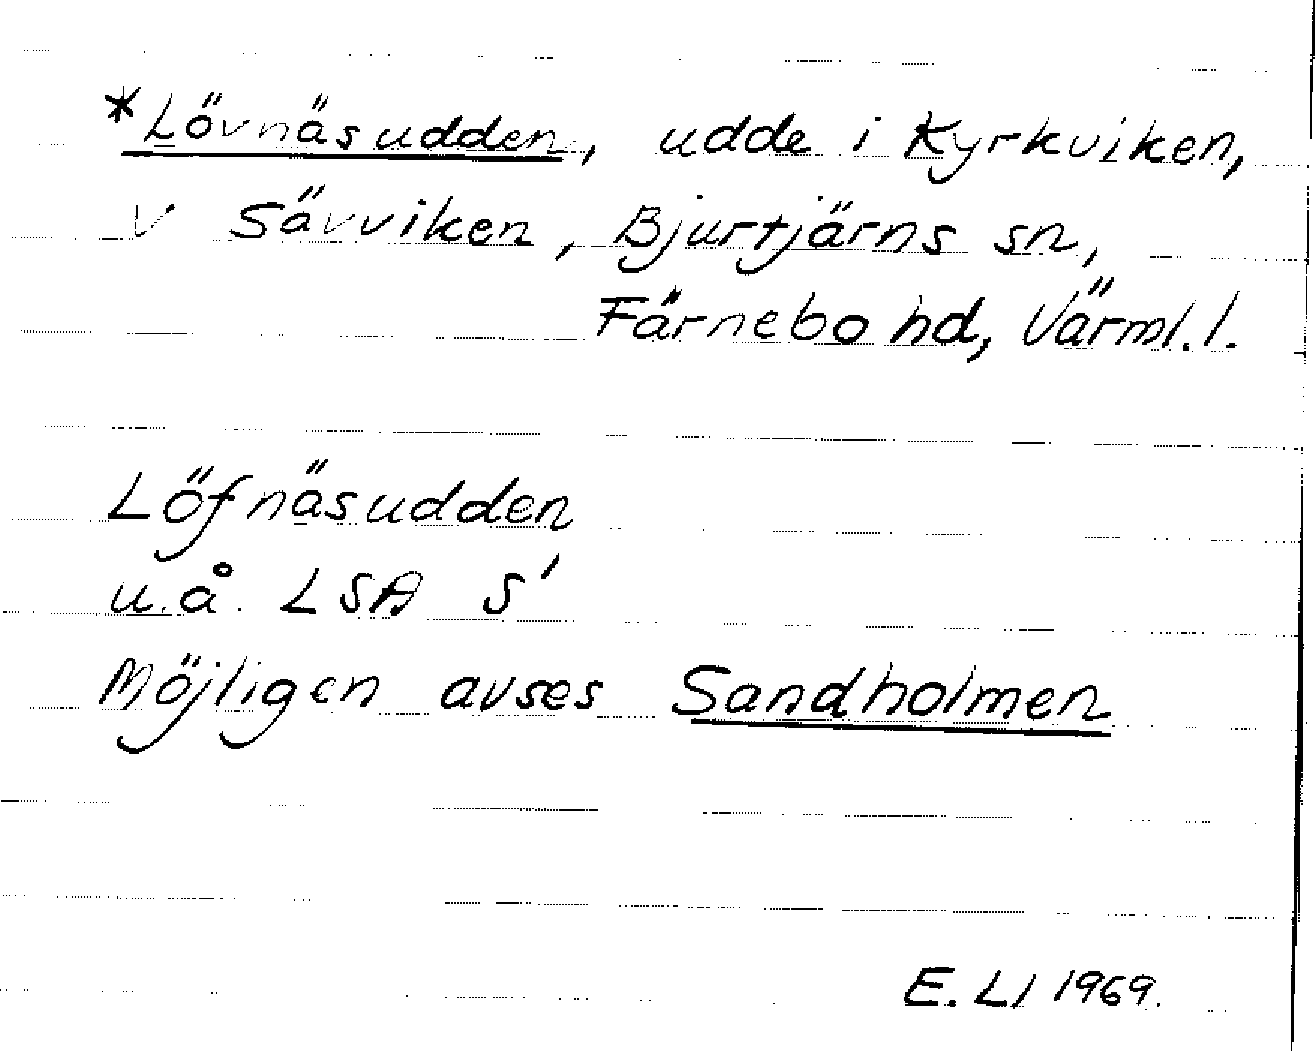 *Lövnäsudden, udde i Kyrkviken,
v Sävviken, Bjurtjärns sn,
Färnebo hd, Värml. l.
Löfnäsudden
u.å. LSA S'
Möjligen avses Sandholmen
E. Ll 1969.